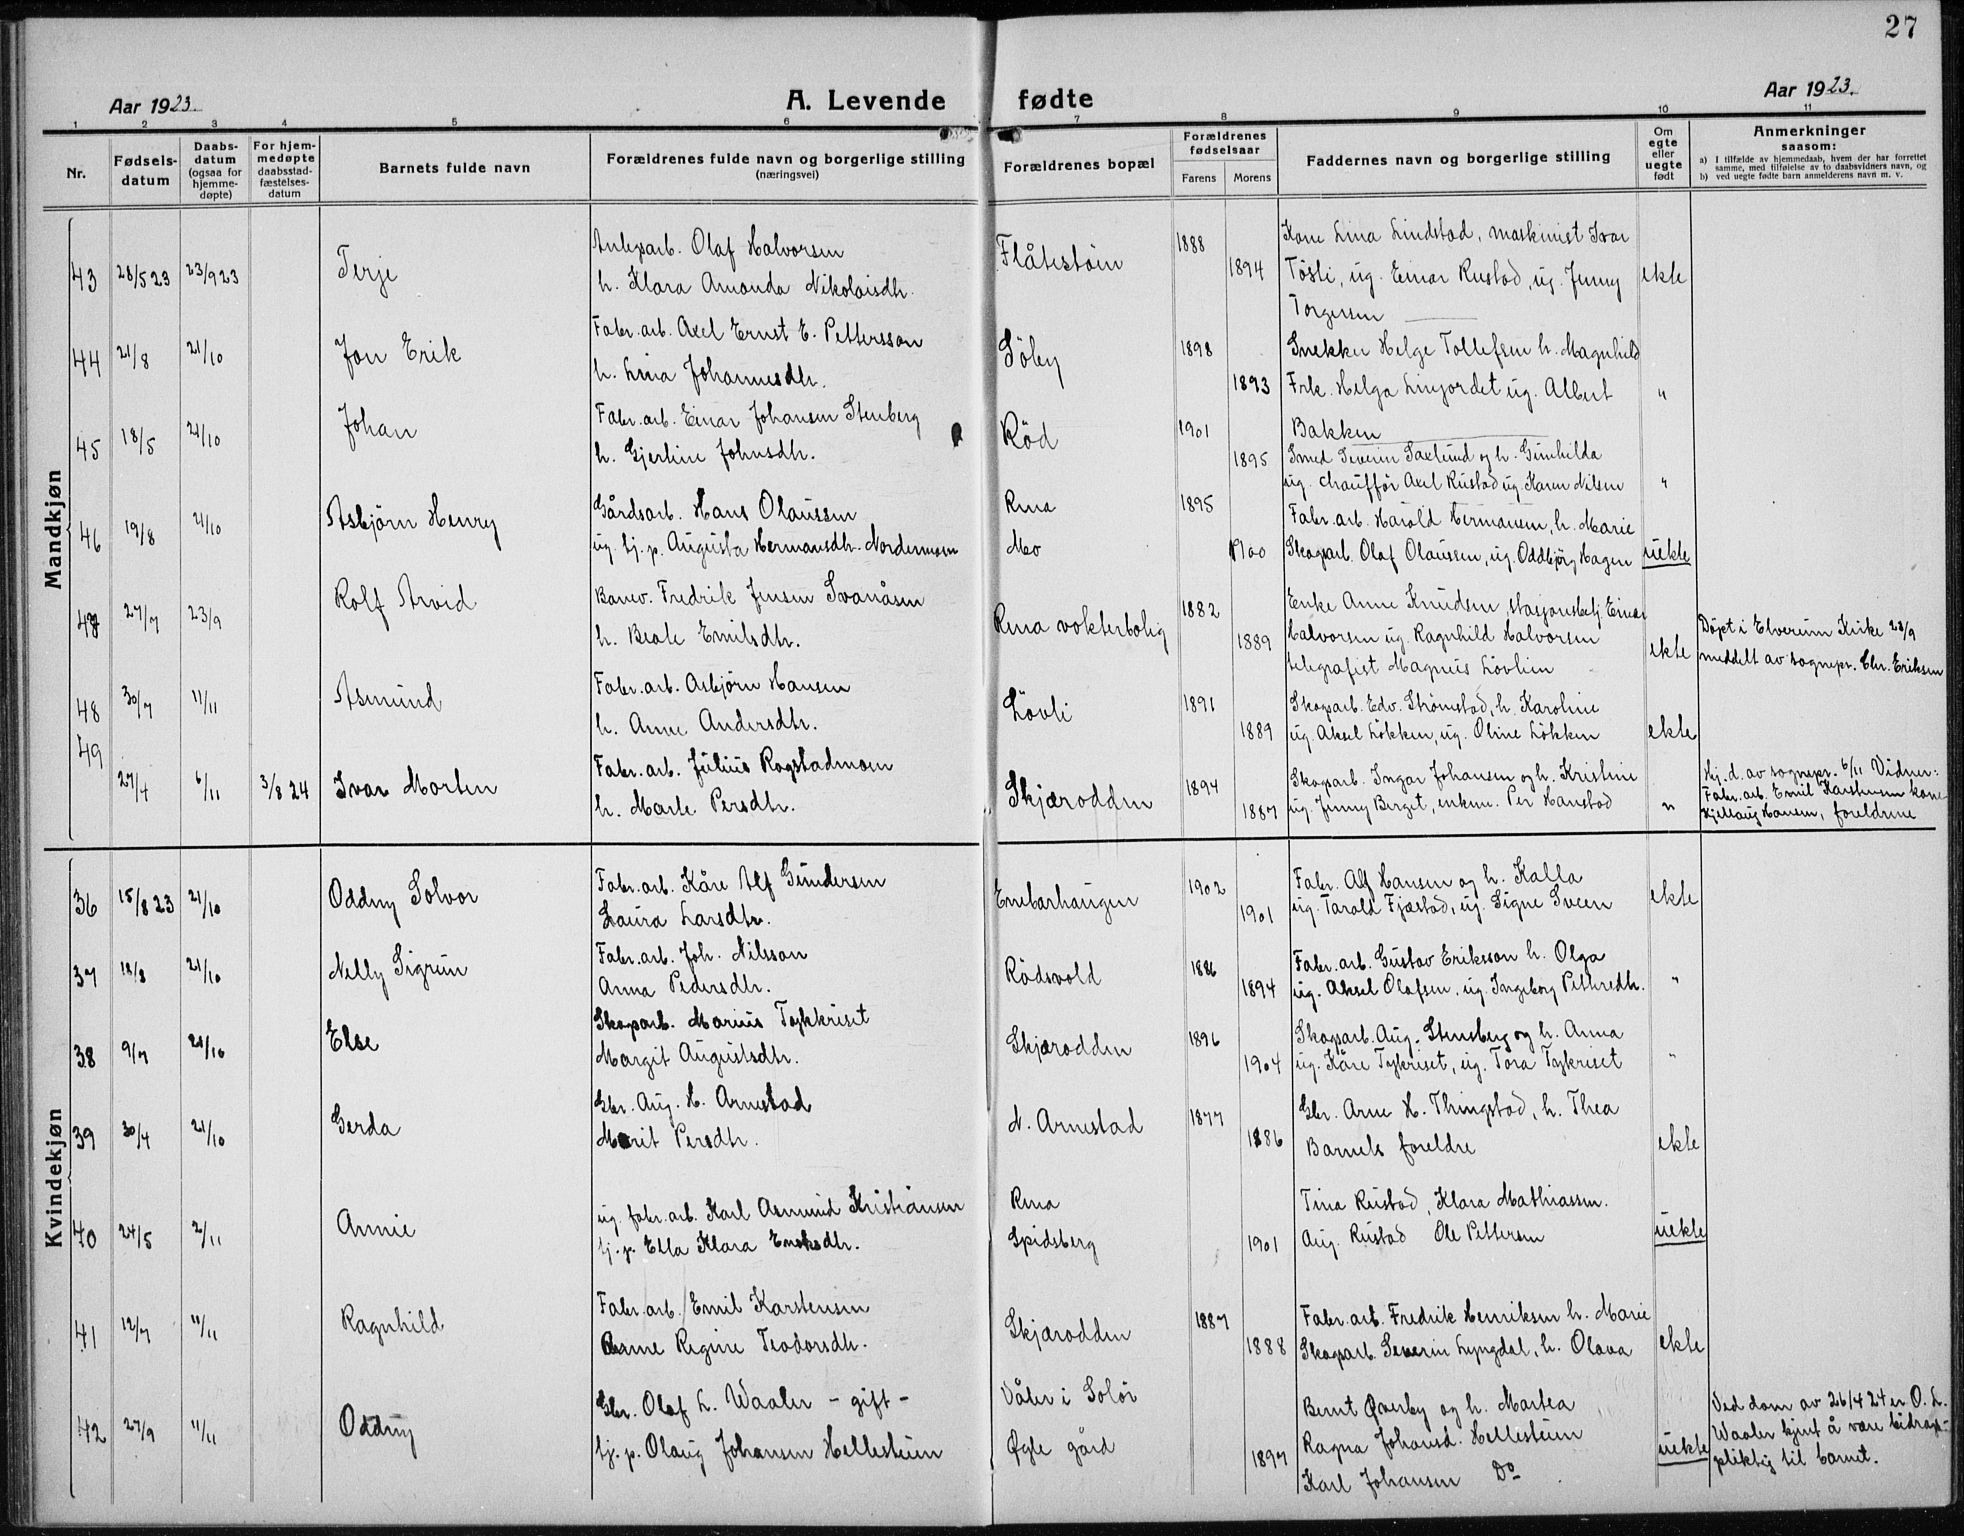 27
Aar 1923.
A. Levende fødte
Aar 1923.
1 2 3 4 5 6 7 8 9 10 11
Nr.
Fødsels-
datum
Daabs-
datum
(ogsaa for
hjemme-
døpte)
For hjem-
medøpte
daabsstad-
fæstelses-
datum
Barnets fulde navn
Forældrenes fulde navn og borgerlige stilling
(næringsvei)
Forældrenes bopæl
Forældrenes
fødselsaar
Farens Morens
Faddernes navn og borgerlige stilling
Om
egte
eller
uegte
født
Anmerkninger
saasom:
a) I tilfælde av hjemmedaab, hvem der har forrettet
samme, med tilføielse av to daabsvidners navn, og
b) ved uegte fødte barn anmelderens navn m. v.
Mandkjøn
43 28/5 23 23/9 23 Terje
Anlegsarb. Olaf Halvorsen
h. Klara Amanda Nikolaisdtr.
Flåtestøin 1888 1894
Kone Lina Lindstad, maskinist Ivar
Tøsti, ug. Einar Rustad, ug. Jenny
Torgersen
ekte
44 21/8 21/10 Jon Erik
Fabr. arb. Axel Ernst E. Pettersson
h. Lina Johannesdtr.
Söby 1898 1893
Snekker Helge Tollefsen h. Magnhild
Frk. Helga Linjordet ug. Albert
Bakken
"
45 18/5 21/10 Johan
Fabr. arb. Einar Johansen Stenberg
h. Gjertine Johnsdtr.
Röd 1901 1895
Smed Severin Saxlund og h. Gunhilda
ug. Chauffør Axel Rustad ug. Karen Nilsen
"
46 19/8 21/10 Asbjörn Henry
Gårdsarb. Hans Olaussen
ug. tj. p. Augusta Hermansdtr. Nordermoen
Rena
Mo
1895 1900
Fabr. arb. Harald Hermansen, h. Marie
Skogsarb. Olaf Olaussen, ug. Oddbjörg Hagen
uekte
47 27/7 23/9 Rolf Arvid
Banev. Fredrik Jensen Svanåsen
h. Beate Emilsdtr.
Rena vokterbolig 1882 1889
Enke Anne Knudsen, stasjonsbetj. Einar
Halvorsen ug. Ragnhild Halvorsen
telegrafist Magnus Lövlien
ekte
Døpt i Elverum Kirke 23/9
meddelt av sognepr. Chr. Eriksen
48 30/7 11/11 Asmund
Fabr. arb. Asbjørn Hansen
h. Anne Andersdtr.
Lövli 1891 1889
Skogsarb. Edv. Strømstad, h. Karoline
ug. Aksel Løkken, ug. Oline Løkken
ekte
49 27/4 6/11 3/8 24 Ivar Morten
Fabr. arb. Julius Rogstadmoen
h. Marte Persdtr.
Skjærodden 1894 1887
Skogsarb. Ingar Johansen og h. Kristine
ug. Jenny Berget, enkem. Per Hanstad
"
Hj. d. av sognepr. 6/11 Vidner:
Fabr. arb. Emil Karstensen kone
Kjellaug Hansen, foreldrene
Kvindekjøn
36 15/8 23 21/10 Oddny Solvor
Fabr. arb. Kåre Alf Gundersen
Laura Larsdtr.
Enebærhaugen 1902 1901
Fabr. Alf Hansen og h. Kalla
ug. Tarald Fjæstad, ug. Signe Sveen
ekte
37 18/8 21/10 Nelly Sigrun
Fabr. arb. Joh. Nilsson
Anna Pedersdtr.
Rödsvold 1886 1894
Fabr. arb. Gustav Eriksson h. Olga
ug. Aksel Olafsen, ug. Ingeborg Pettredtr.
"
38 9/7 21/10 Else
Skogsarb. Marius Tykkriset
Margit Augustsdtr.
Skjærodden 1896 1904
Skogsarb. Aug. Stensberg og h. Anna
ug. Kåre Tykriset, ug. Tora Tykriset
"
39 30/4 21/10 Gerda
Gbr. Aug. H. Arnestad
Marit Persdtr.
N. Arnestad 1877 1886
Gbr. Arne H. Thingstad, h. Thea
Barnets foreldre
ekte
40 24/5 2/11 Annie
ug. fabr. arb. Karl Asmund Kristiansen
tj. p. Ella Klara Eriksdtr.
Rena
Spidsberg
1901
Tina Rustad, Klara Mathiassen.
Aug. Rustad Ole Pettersen
uekte
41 12/7 11/11 Ragnhild
Fabr. arb. Emil Karstensen
Anne Regine Teodorsdtr.
Skjærodden 1887 1888
Fabr. arb. Fredrik Henriksen h. Marie
Skogsarb. Severin Lyngdal, h. Olava
ekte
42 27/9 11/11 Oddny
Gbr. Olaf L. Waaler - gift -
tj. p. Olaug Johansen Hellesteien
Våler i Solør
Øgle gård
1897
Bernt Øverby og h. Martea
Ragna Johansd. Hellesteien
Karl Johansen Do
uekte
Ved dom av 26/4 24 er O. L.
Waaler kjent å være bidrags-
pliktig til barnet.